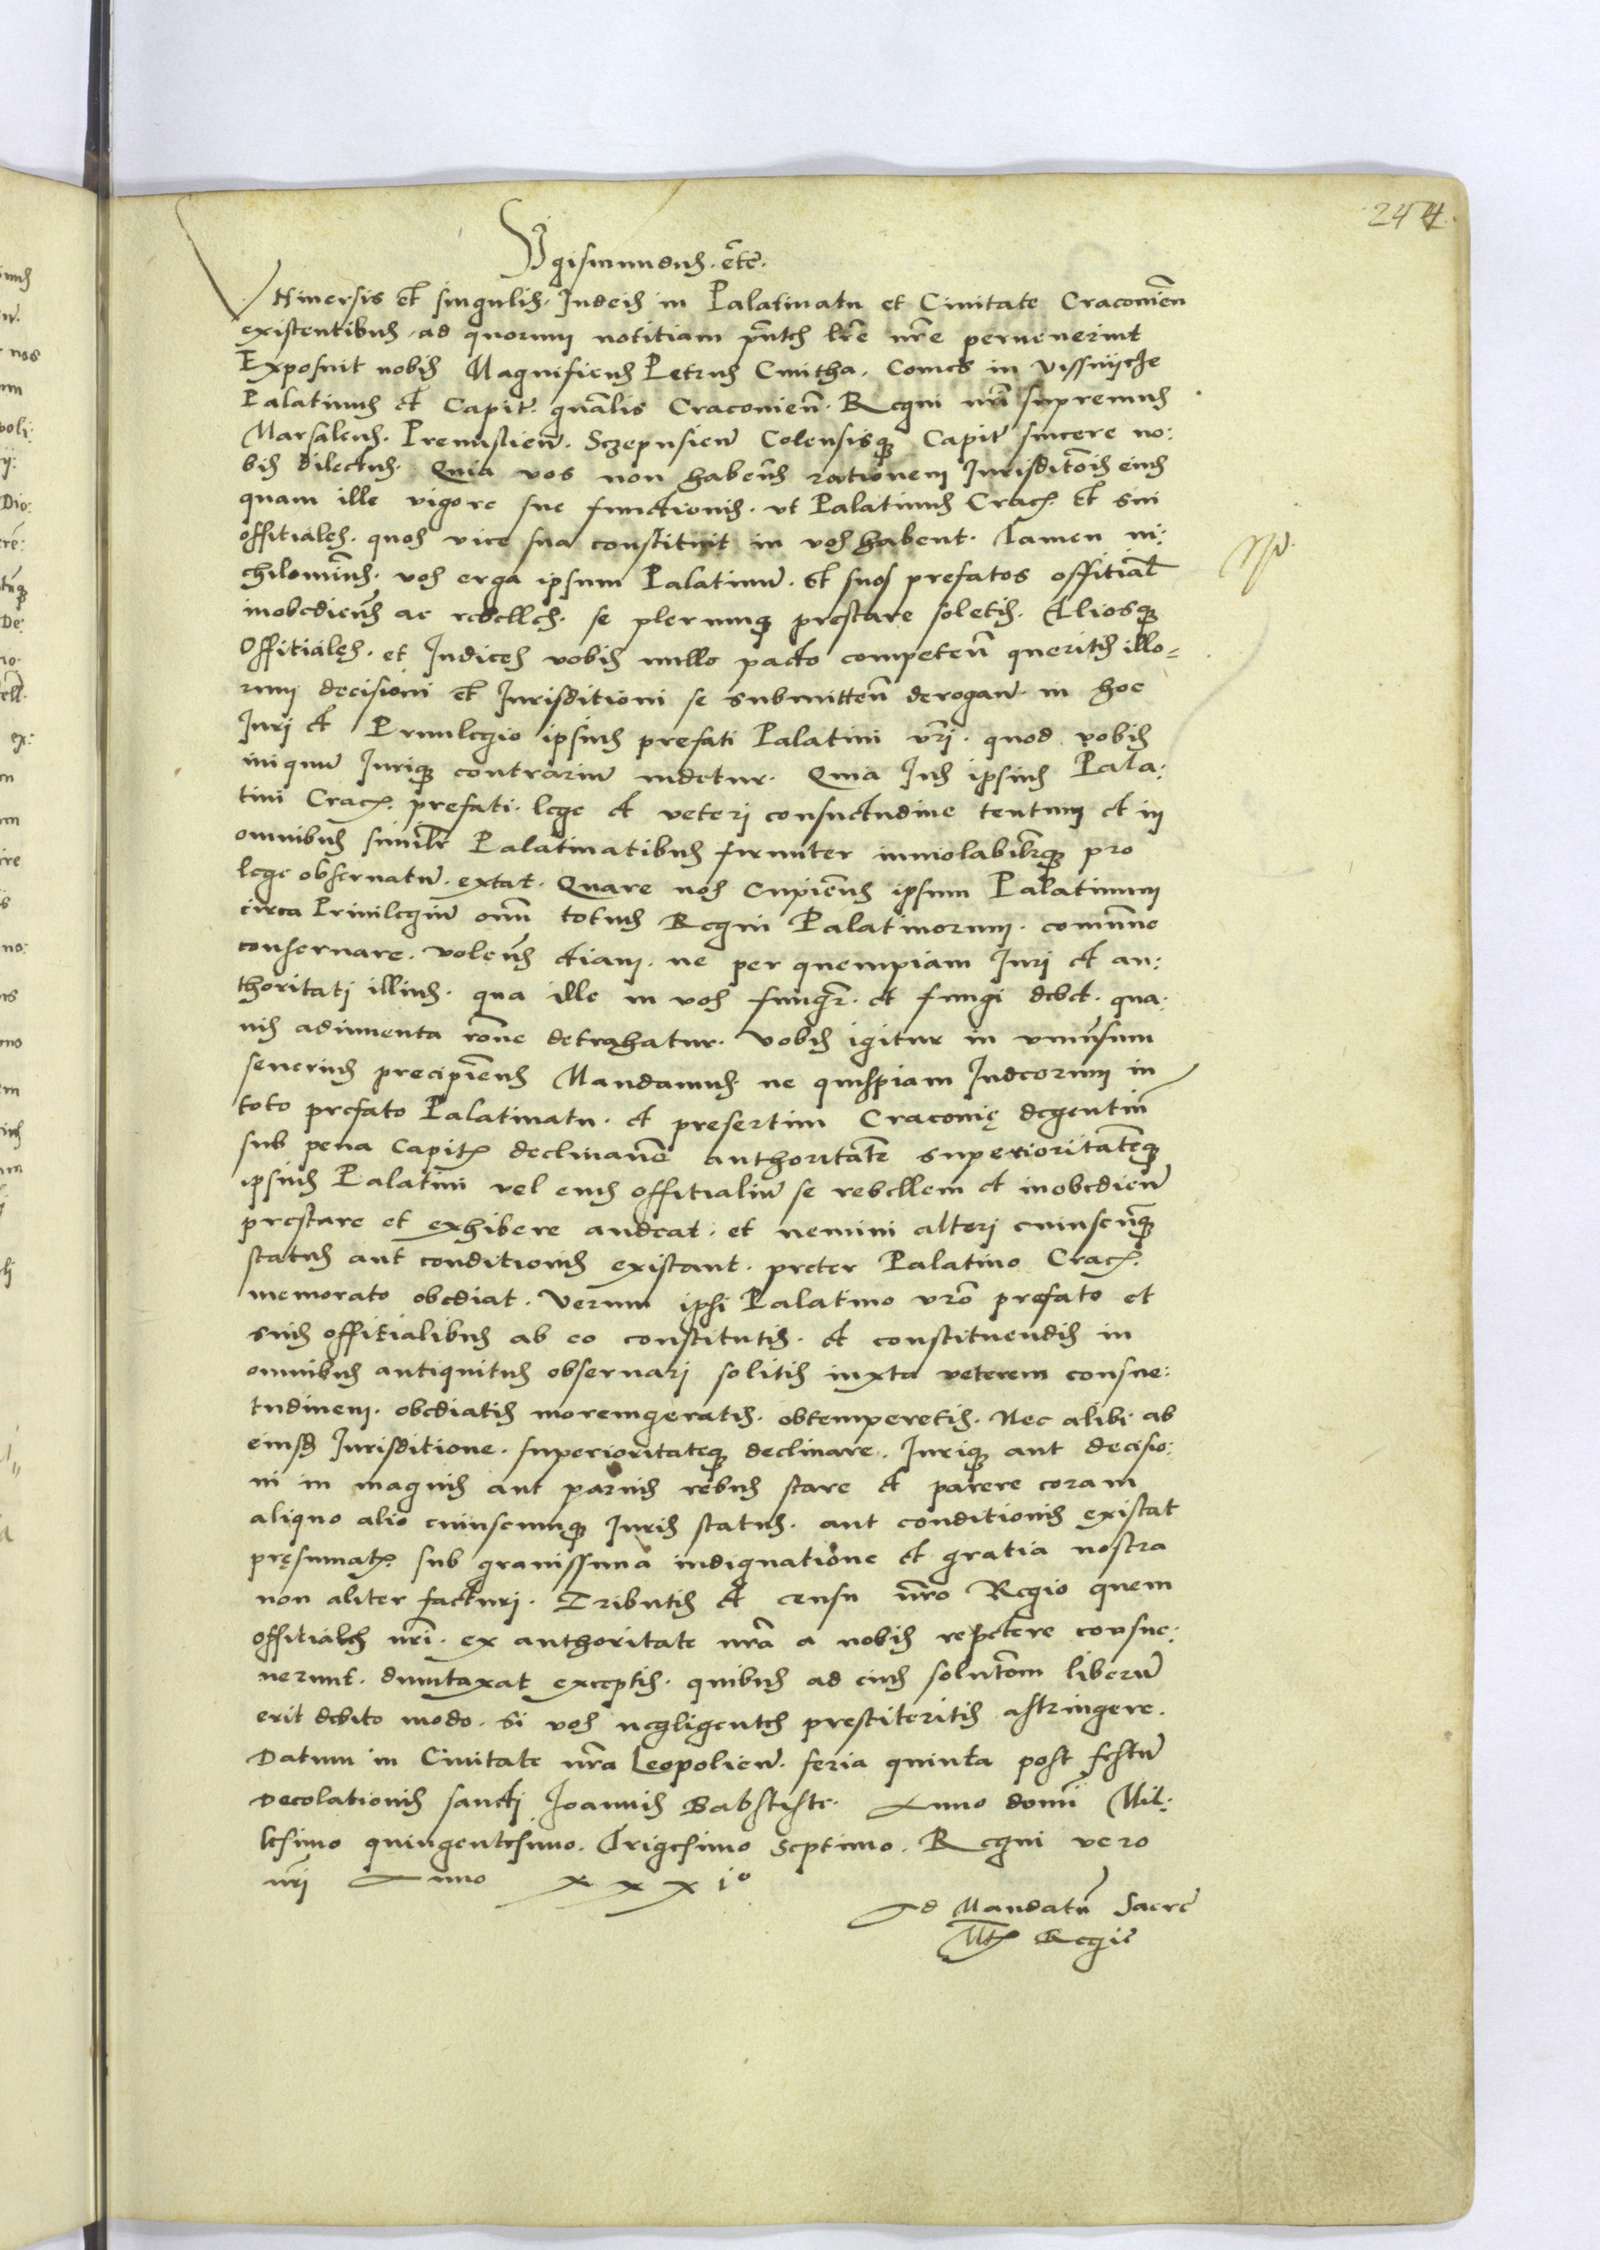 244.
Sigismundus. etc̄.
Vniuersis et singulis. Iudeis in Palatinatu et Ciuitate Cracouien̄
existentibus. ad quorum notitiam pn̄tes lr̄e nr̄e peruenerint
Exposuit nobis Magnificus Petrus Cmitha. Comes in Vissnijcze
Palatinus et Capit. gn̄alis Cracouien̄. Regni nr̄i supremus
Marsalcus. Premislien̄. Sczepusien̄ Colensisq; Capit sincere no:
bis dilectus. Quia vos non haben̄s rationem Iurisditiōis eius
quam ille vigore sue functionis. vt Palatinus Crac. et sui
offitiales. quos vice sua constituit in vos habent. Tamen ni:
chilomin̄us. vos erga ipsum Palatinū. et suos prefatos offitial̄
inobedien̄s ac rebelles. se plerumq; prestare soletis. Aliosq;
Offitiales. et Iudices vobis nullo pacto competen̄ queritis illo=
rum decisioni et Iurisditioni se submitten̄ derogan̄. in hoc
Iuri et Priuilegio ipsius prefati Palatini vr̄i. quod vobis
iniquū Iuriq; contrariū videtur. Quia Ius ipsius Pala:
tini Crac. prefati. lege et veteri consuetudine tentum et in
omnibus similr̄ Palatinatibus firmiter inuiolabilr̄q; pro
lege obseruatū. extat. Quare nos Cupien̄s ipsum Palatinum
circa Priuilegiū om̄iū totius Regni Palatinorum. comūne
conseruare. volen̄s etiam. ne per quempiam Iuri et au:
thoritati illius. qua ille in vos fungr̄. et fungi debet. qua:
uis adinuenta rōne detrahatur. Vobis igitur in vniuersum
seuerius precipien̄s Mandamus. ne quispiam Iudeorum in
toto prefato Palatinatu. et presertim Cracouię degentiū
sub pena Capitis declinan̄ authoritatē superioritatēq;
ipsius Palatini vel eius offitialiū se rebellem et inobedien̄
prestare et exhibere audeat. et nemini alteri cuiuscūq;
status aut conditionis existant. preter Palatino Crac.
memorato obediat. Verum ipsi Palatino vr̄o prefato et
suis offitialibus ab eo constitutis. et constituendis in
omnibus antiquitus obseruari solitis iuxta veterem consue:
tudinem. obediatis moremgeratis. obtemperetis. Nec alibi ab
eiusd̄ Iurisditione. superioritateq; declinare. Iuriq; aut decisio:
ni in magnis aut paruis rebus stare et parere coram
aliquo alio cuiuscumq; Iuris status. aut conditionis existat
pręsumatis. sub grauissima indignatione et gratia nostra
non aliter facturi. Tributis et censu nr̄o Regio quem
offitiales nr̄i. ex authoritate nr̄a a nobis repetere consue:
uerunt. dumtaxat exceptis. quibus ad eius solutiōm liberū
erit debito modo. si vos negligentes prestiteritis astringere.
Datum in Ciuitate nr̄a Leopolien̄. feria quinta post festū
Decolationis sancti Ioannis Babstiste. Anno domī Mil:
lesimo quingentesimo. Trigesimo Septimo. Regni vero
nr̄i Anno xxxi°
Ad Mandatū Sacre
Mt̄is Regie